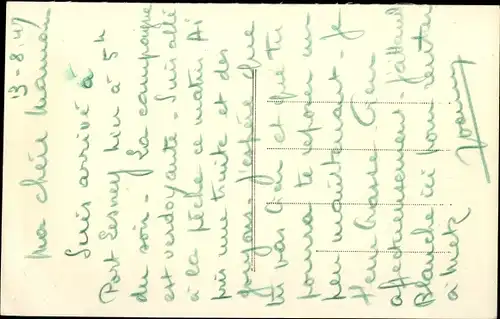 13-8.49
Ma chère Maman
Suis arrivé à
Port Lesney hier à 5h
du soir - La campagne
est verdoyante - Suis allé
à la pêche ce matin Ai
pris une truite et des
goujons - J'espère que
tu vas bien et que tu
pourras te reposer un
peu maintenant - Je
t'embrasse bien
affectueusement - J'attends
Blanche ici pour rentrer
à Metz